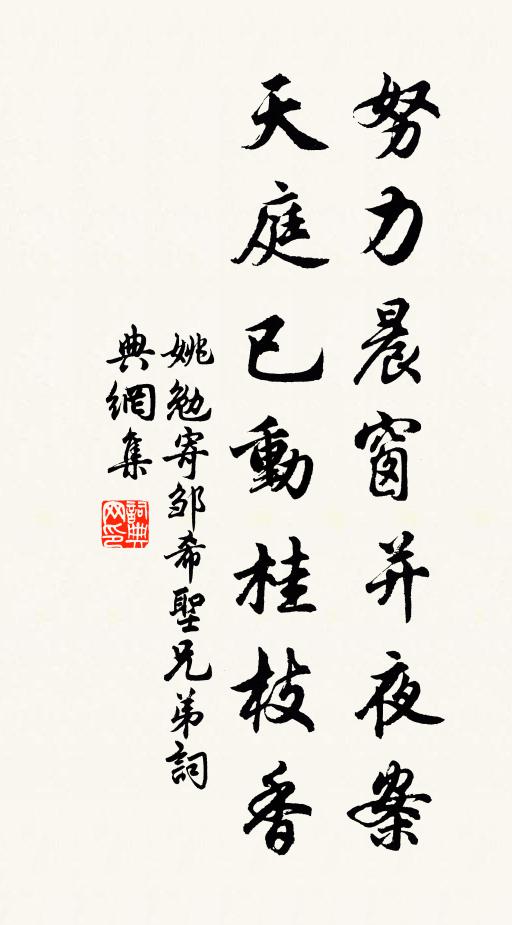 努力晨窗并夜案
天庭已動桂枝香
姚勉寄邹希聖兄弟詞
典網集
詞典网印